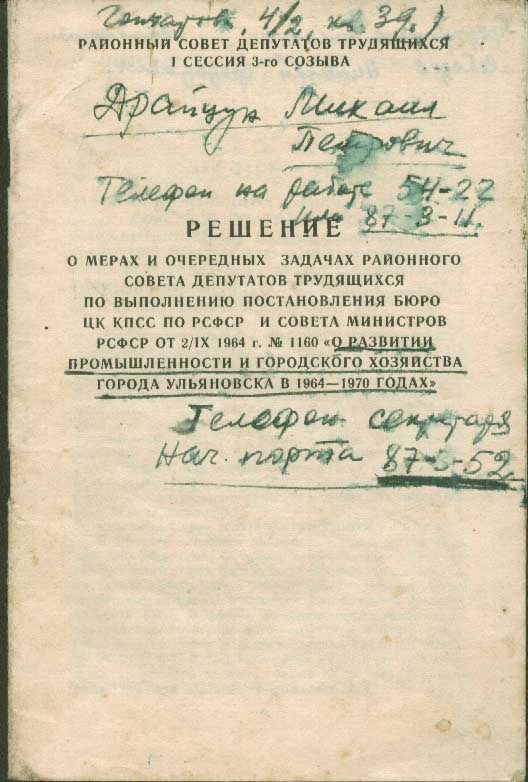 Гончарова, 4/2, кв. 39.)
РАЙОННЫЙ СОВЕТ ДЕПУТАТОВ ТРУДЯЩИХСЯ
I СЕССИЯ 3-го СОЗЫВА
Драйцун Михаил
Петрович
Телефон на работе 54-22
или 87-3-11.
РЕШЕНИЕ
О МЕРАХ И ОЧЕРЕДНЫХ ЗАДАЧАХ РАЙОННОГО
СОВЕТА ДЕПУТАТОВ ТРУДЯЩИХСЯ
ПО ВЫПОЛНЕНИЮ ПОСТАНОВЛЕНИЯ БЮРО
ЦК КПСС ПО РСФСР И СОВЕТА МИНИСТРОВ
РСФСР ОТ 2/IX 1964 г. № 1160 «О РАЗВИТИИ
ПРОМЫШЛЕННОСТИ И ГОРОДСКОГО ХОЗЯЙСТВА
ГОРОДА УЛЬЯНОВСКА В 1964—1970 ГОДАХ»
Телефон секретаря
Нач. порта 87-3-52